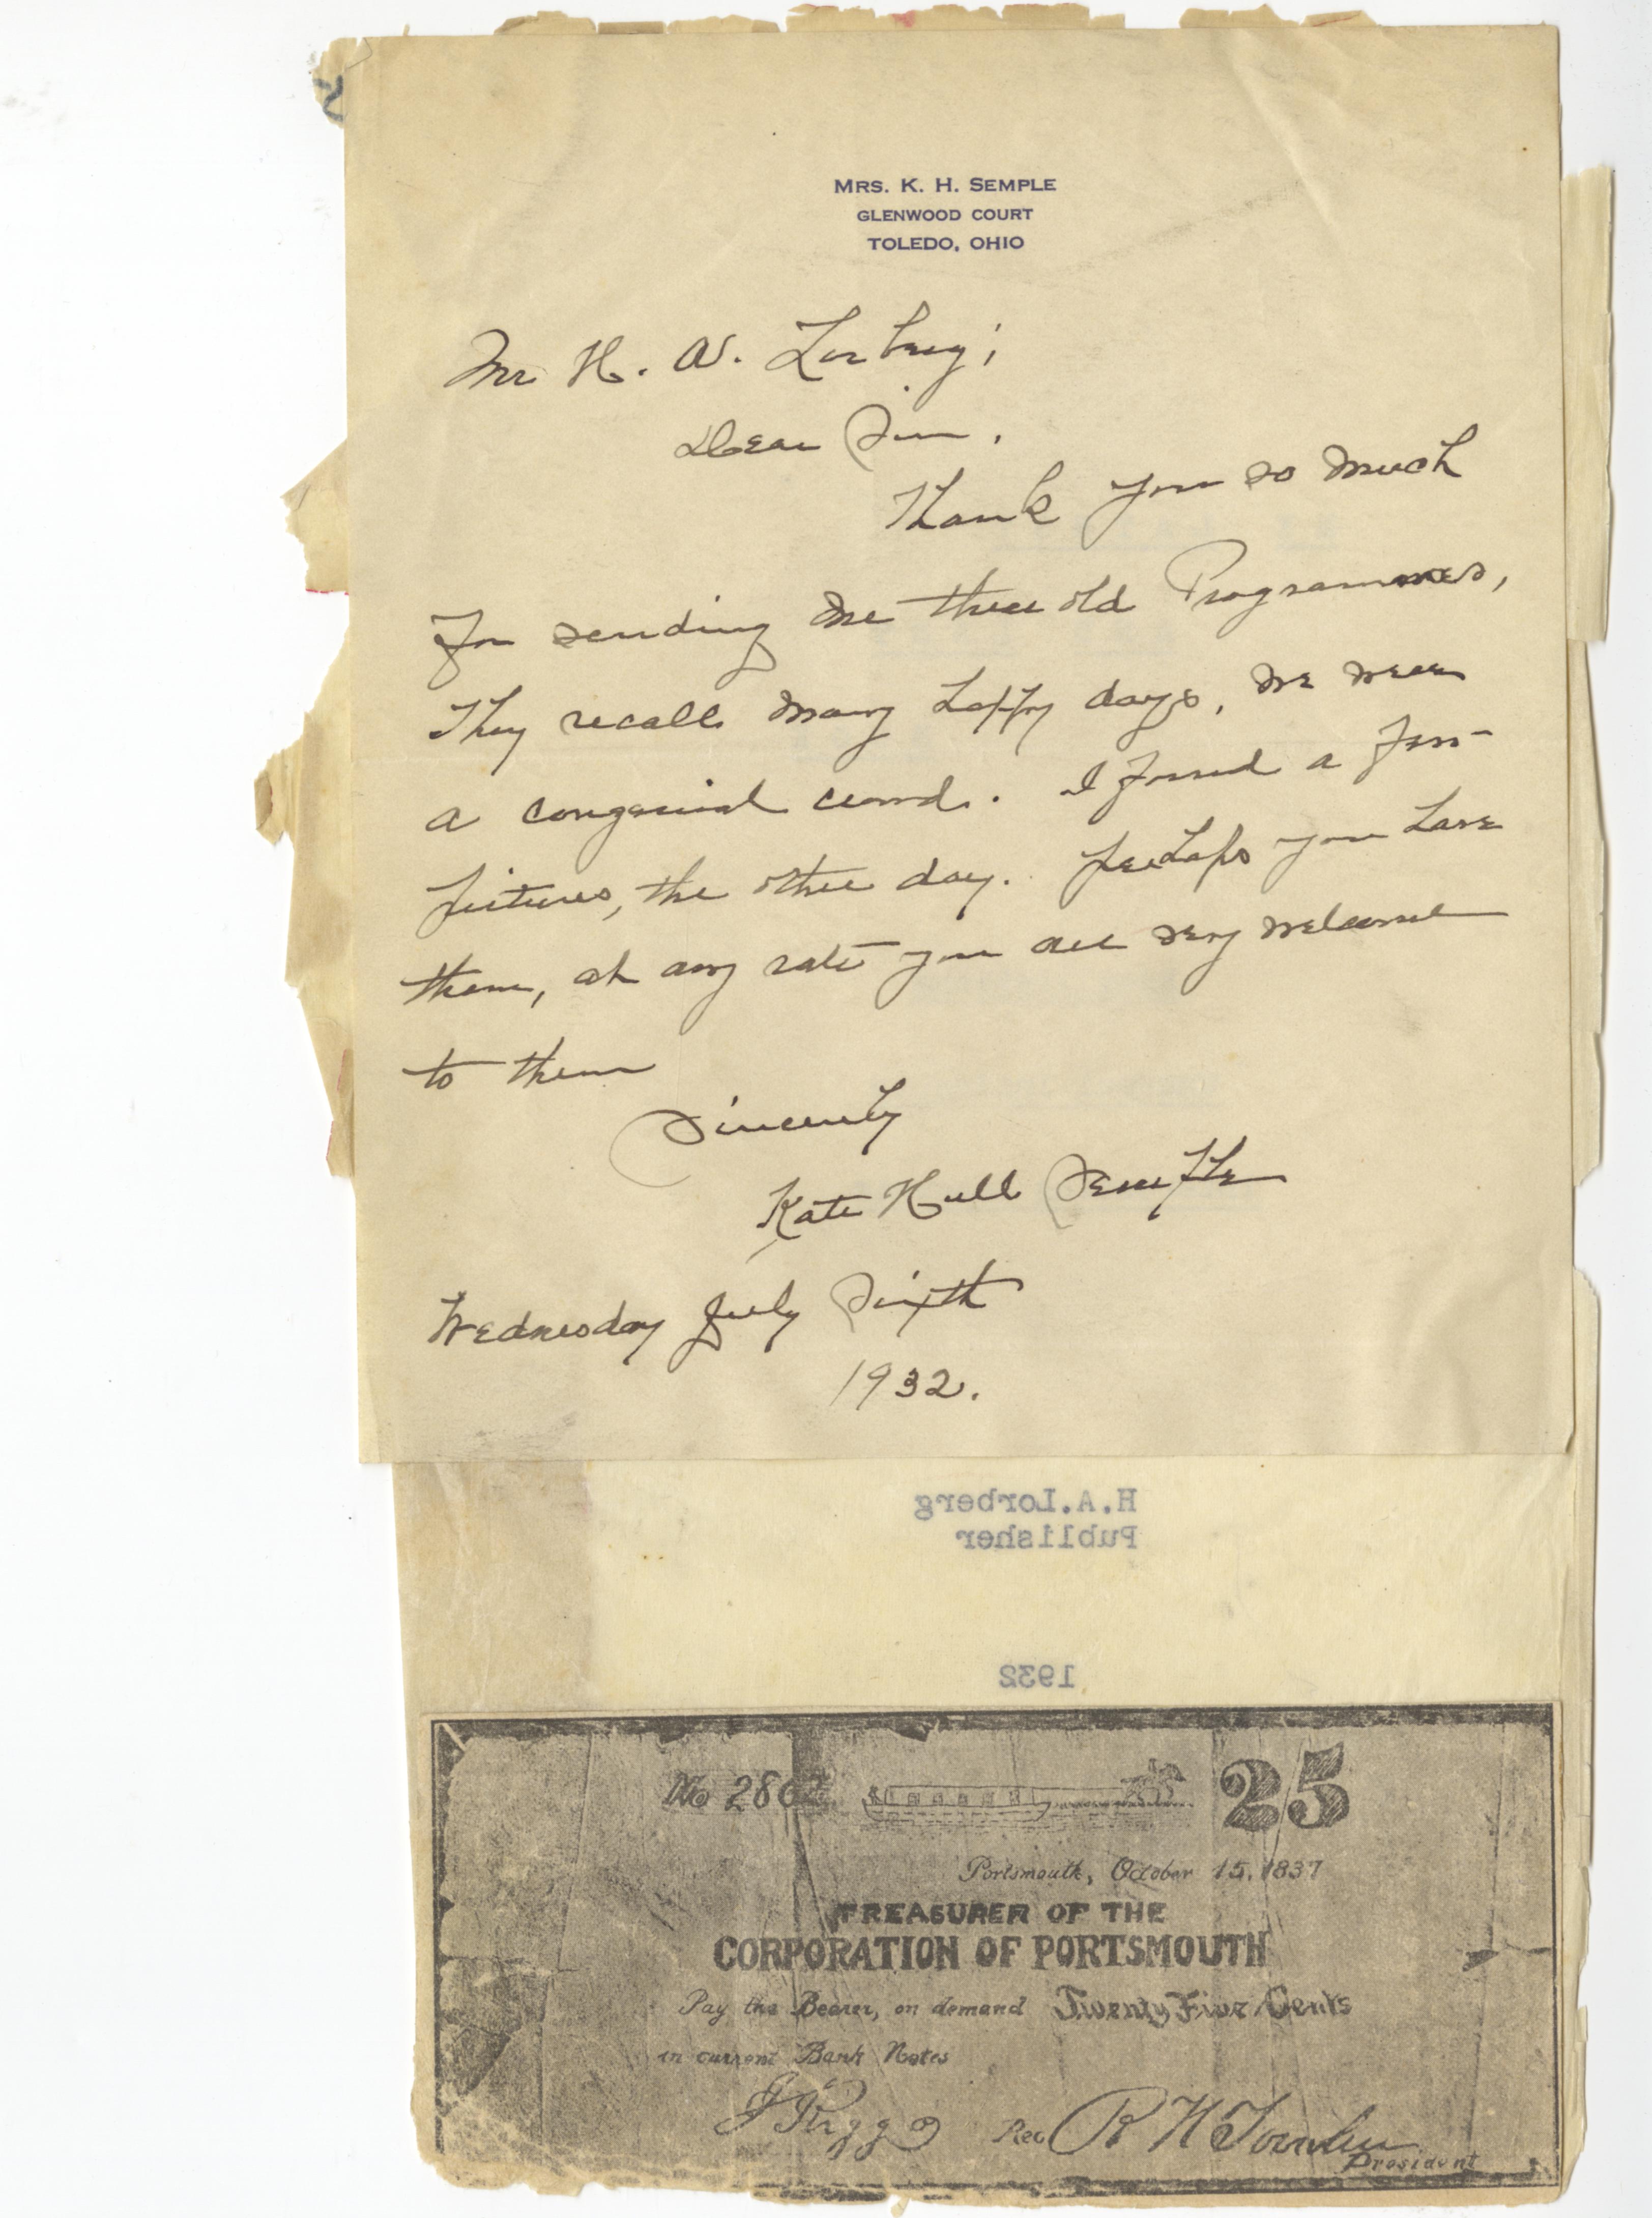 MRS. K. H. SEMPLE
GLENWOOD COURT
TOLEDO, OHIO
Mr H. A. Lorberg;
Dear Sir.
Thank you so much
for sending me these old Programmes,
They recall many happy days, we were
a congenial crowd. I found a few
pictures, the other day. perhaps you have
them, at any rate you are very welcome
to them
Sincerely
Kate Hull Semple
Wednesday July Sixth
1932.
H.A.Lorberg
Publisher
1932
No 2862 25
Portsmouth, October 15, 1837
TREASURER OF THE
CORPORATION OF PORTSMOUTH
Pay the Bearer, on demand Twenty Five Cents
in current Bank Notes
J Riggs Rec R H Tomlin
President